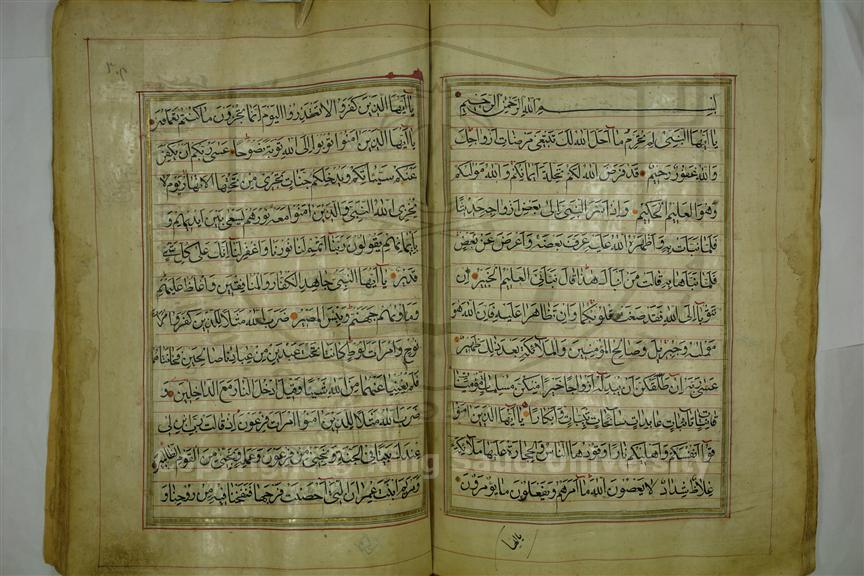 بسم الله الرحمن الرحيم
يا أيها النبي لم تحرم ما أحل الله لك تبتغي مرضات أزواجك
والله غفور رحيم قد فرض الله لكم تحلة أيمانكم والله موليكم
وهو العليم الحكيم وإذ أسر النبي إلى بعض أزواجه حديثا
فلما نبأت به وأظهره الله عليه عرف بعضه وأعرض عن بعض
فلما نبأها به قالت من أنبأك هذا قال نبأني العليم الخبير إن
تتوبا إلى الله فقد صغت قلوبكما وإن تظاهرا عليه فإن الله هو
موليه وجبريل وصالح المؤمنين والملائكة بعد ذلك ظهير
عسى ربه إن طلقكن أن يبدله أزواجا خيرا منكن مسلمات مؤمنات
قانتات تائبات عابدات سائحات ثيبات وأبكارا يا أيها الذين آمنوا
قوا أنفسكم وأهليكم نارا وقودها الناس والحجارة عليها ملائكة
غلاظ شداد لا يعصون الله ما أمرهم ويفعلون ما يؤمرون
يا أيها
يا أيها الذين كفروا لا تعتذروا اليوم إنما تجزون ما كنتم تعملون
يا أيها الذين آمنوا توبوا إلى الله توبة نصوحا عسى ربكم أن يكفر
عنكم سيئاتكم ويدخلكم جنات تجري من تحتها الأنهار يوم لا
يخزي الله النبي والذين آمنوا معه نورهم يسعى بين أيديهم و
بأيمانهم يقولون ربنا أتمم لنا نورنا واغفر لنا إنك على كل شيء
قدير يا أيها النبي جاهد الكفار والمنافقين واغلظ عليهم
ومأويهم جهنم وبئس المصير ضرب الله مثلا للذين كفروا امرأة
نوح وامرأت لوط كانتا تحت عبدين من عبادنا صالحين فخانتاهما
فلم يغنيا عنهما من الله شيئا وقيل ادخلا النار مع الداخلين و
ضرب الله مثلا للذين آمنوا امرأت فرعون إذ قالت رب ابن لي
عندك بيتا في الجنة ونجني من فرعون وعمله ونجني من القوم الظالمين
ومريم ابنت عمران التي أحصنت فرجها فنفخنا فيه من روحنا و
King Saud University